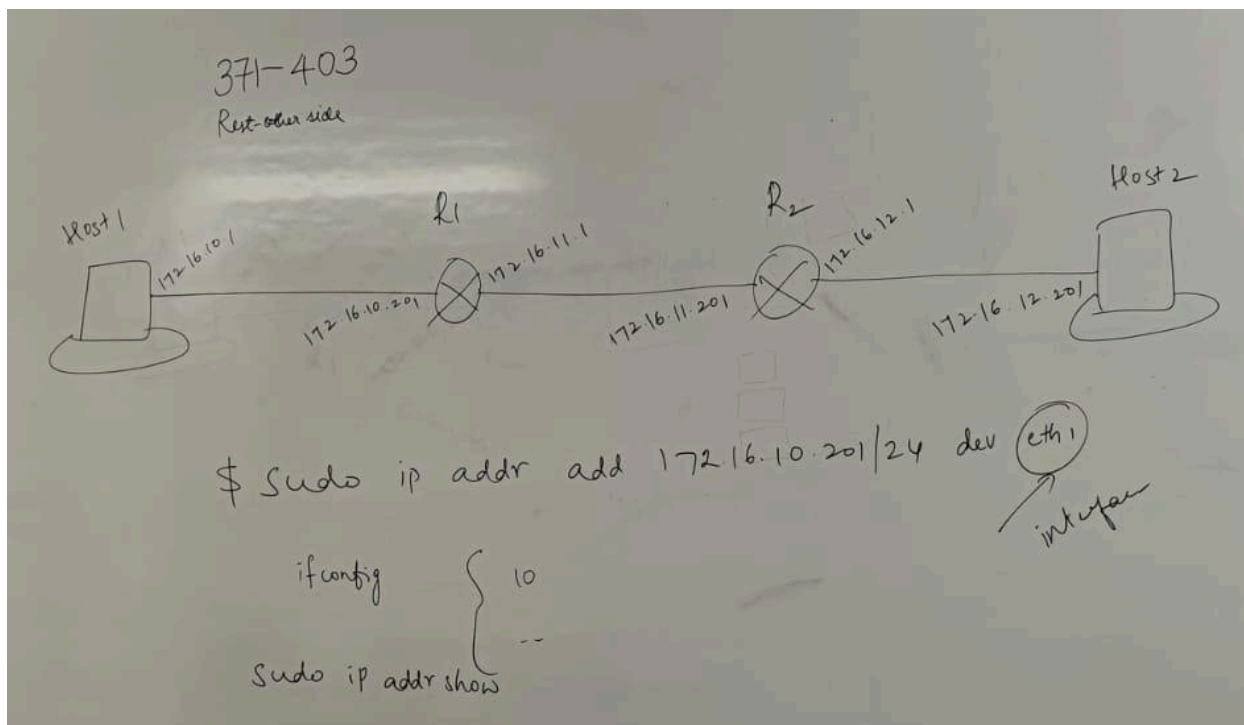 371-403
Rest-other side
Host 1
R1
R2
Host 2
172.16.10.1
172.16.10.201
172.16.11.1
172.16.11.201
172.16.12.1
172.16.12.201
$ sudo ip addr add 172.16.10.201/24 dev eth1
interface
ifconfig { 10
--
sudo ip addr show